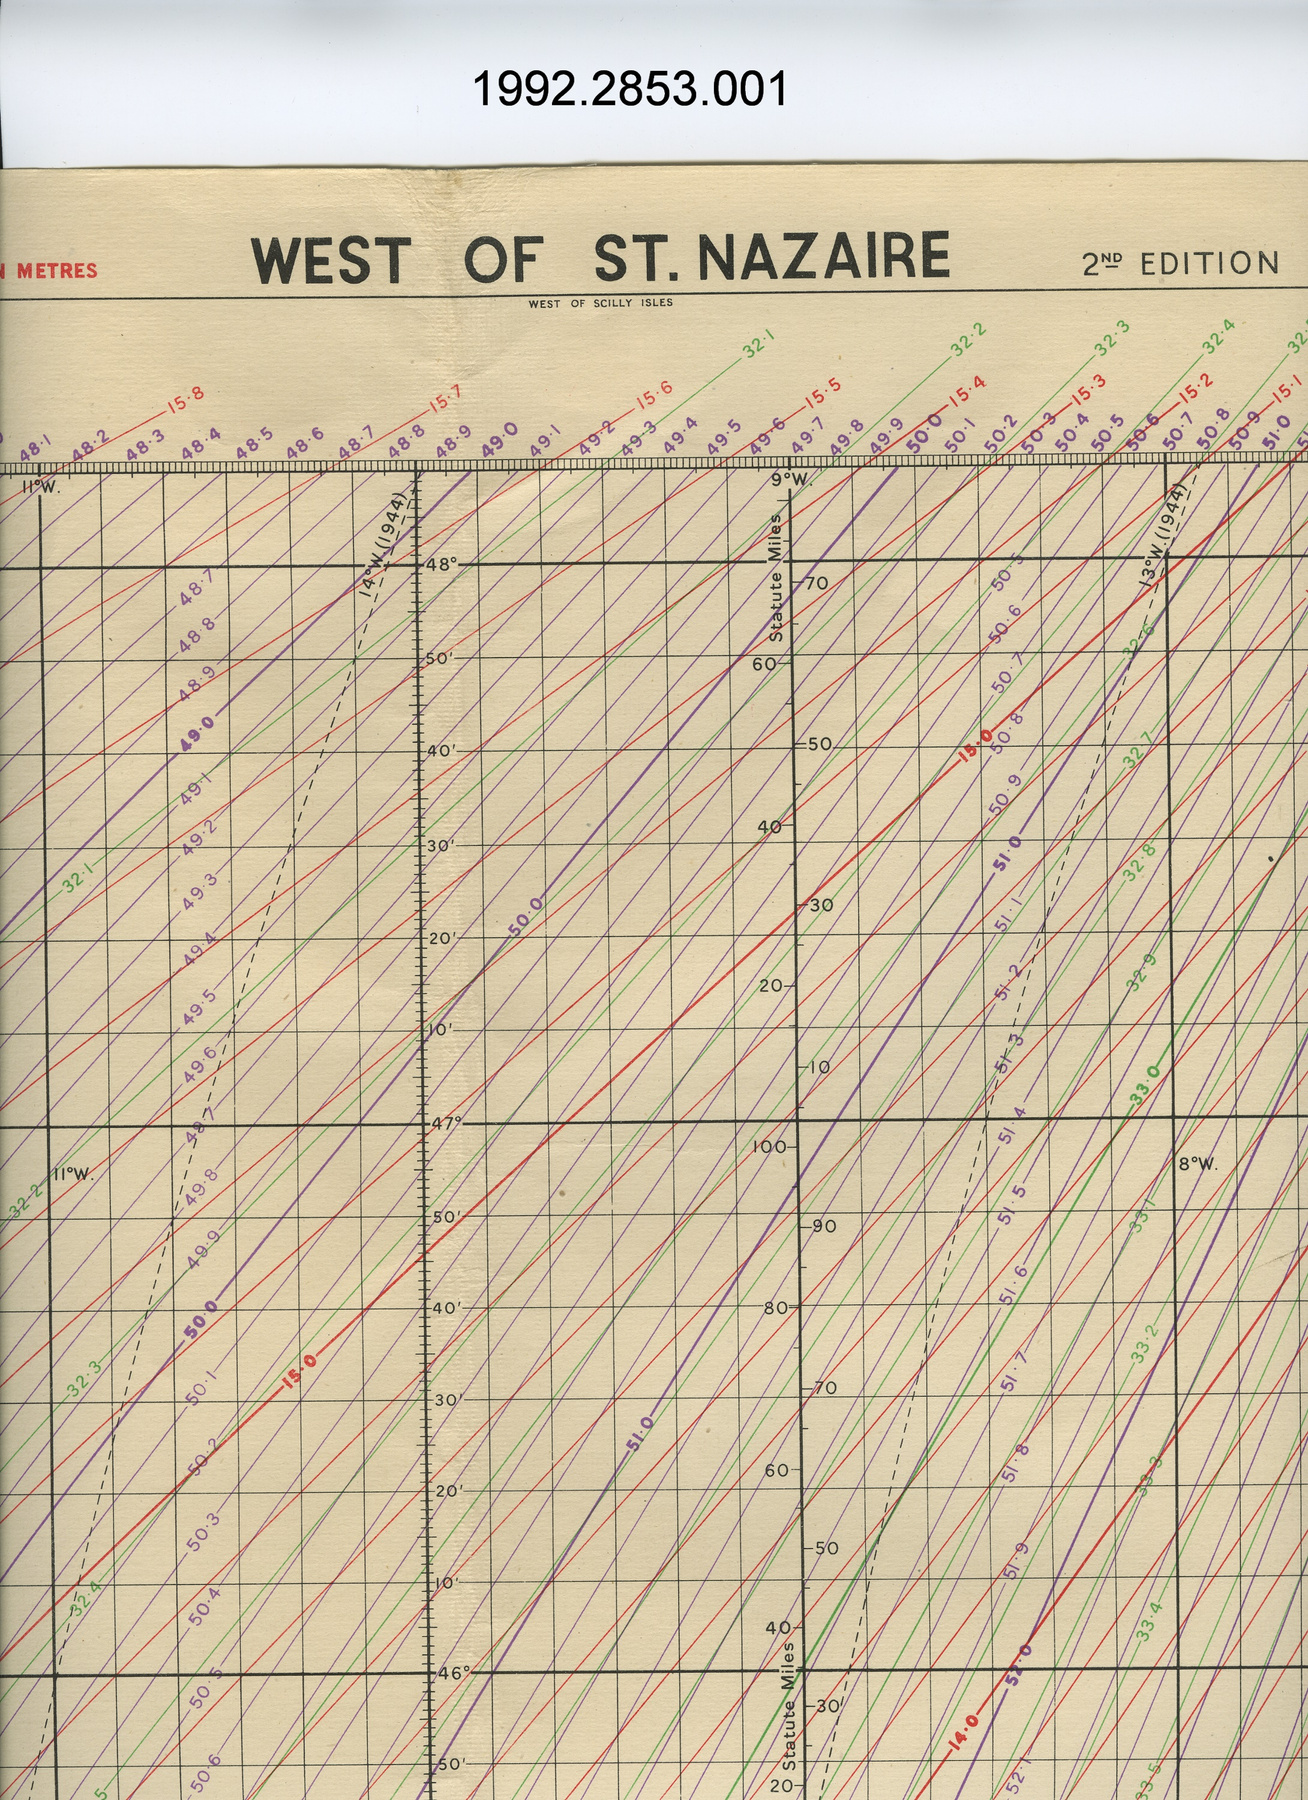 1992.2853.001
METRES
WEST OF ST. NAZAIRE
2ND EDITION
WEST OF SCILLY ISLES
32·1 32·2 32·3 32·4
15·8 15·7 15·6 15·5 15·4 15·3 15·2 15·1
48·1 48·2 48·3 48·4 48·5 48·6 48·7 48·8 48·9 49·0 49·1 49·2 49·3 49·4 49·5 49·6 49·7 49·8 49·9 50·0 50·1 50·2 50·3 50·4 50·5 50·6 50·7 50·8 50·9 51·0
11°W. 9°W.
14°W.(1944) 13°W.(1944)
Statute Miles
48°
70
48·7 50·5
48·8 50·6 32·6
50' 60
48·9 50·7
49·0 50·8
40' 50 15·0 32·7
49·1 50·9
49·2 40
30' 51·0 32·8
32·1 49·3
30
50·0 51·1
20'
49·4 51·2 32·9
20
49·5
10' 51·3
49·6 10 33·0
49·7 47° 51·4
100
11°W. 8°W.
32·2 49·8 51·5
50' 90 33·1
49·9 51·6
50·0 40' 80 33·2
32·3 15·0 51·7
50·1 30' 70
51·0
50·2 60 51·8 33·3
20'
50·3
50 51·9
10'
32·4 50·4 40 33·4
46° 52·0
50·5
Statute Miles
30 14·0
50·6 50' 52·1 33·5
20